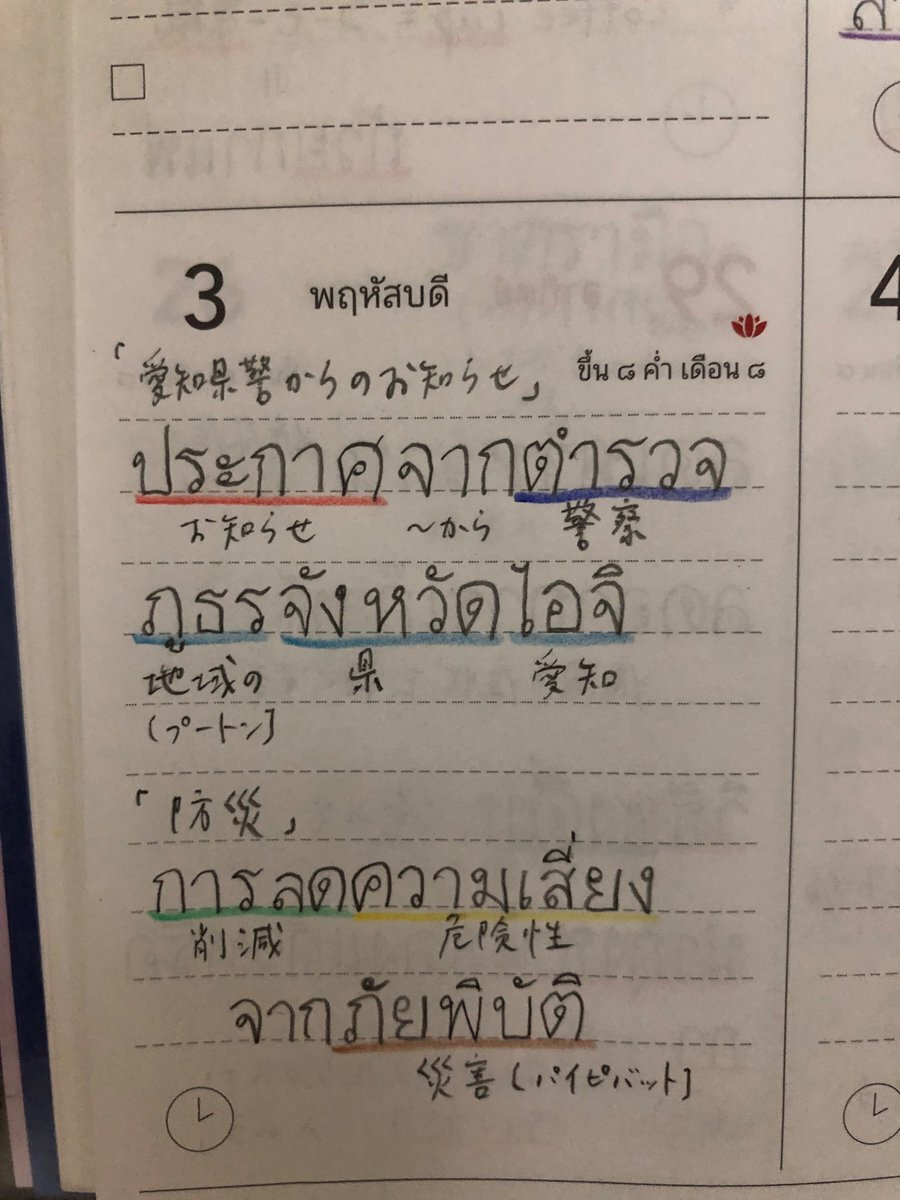 3 พฤหัสบดี
「愛知県警からのお知らせ」
ขึ้น ๘ ค่ำ เดือน ๘
ประกาศจากตำรวจ
お知らせ ～から 警察
ภูธรจังหวัดไอจิ
地域の 県 愛知
(プートン]
「防災」
การลดความเสี่ยง
削減 危険性
จากภัยพิบัติ
災害 (パイピバット]
4
29